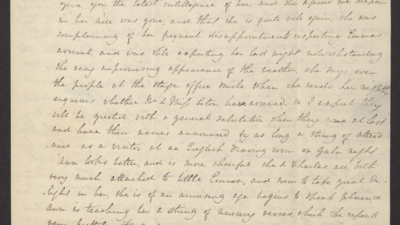 give you the latest intelligence of her, and the
in her side was gone, and that she is quite well again, she was
complaining of her frequent disappointments respecting Emmas
arrival and was still expecting her last night notwithstanding
the very unpromising appearance of the weather, she says, even
the people at the stage office smile when she sends her nightly
enquiries whether Mr & Miss have arrived. so I expect they
will be greeted with a general salutation when they come at last
and have their names announced by as long a string of attend
ance as a visitor at an English drawing room on Gala night
Ann looks better, and is more cheerful she & Charles are both
very much attached to little Emma, and seem to take great de-
light in her, she is of an amusing age begins to speak plain
Ann is teaching her a string of nursery verses which she repeats
very